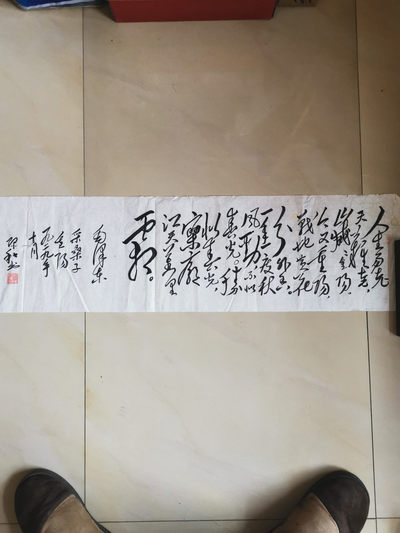 人生易老
天难老岁
岁重阳，
今又重阳，
战地黄花
分外香。
一年一度秋
风劲不似
春光。胜
似春光，
寥廓
江天万里
霜。
毛泽东
采桑子
重阳
一九二九年
十月